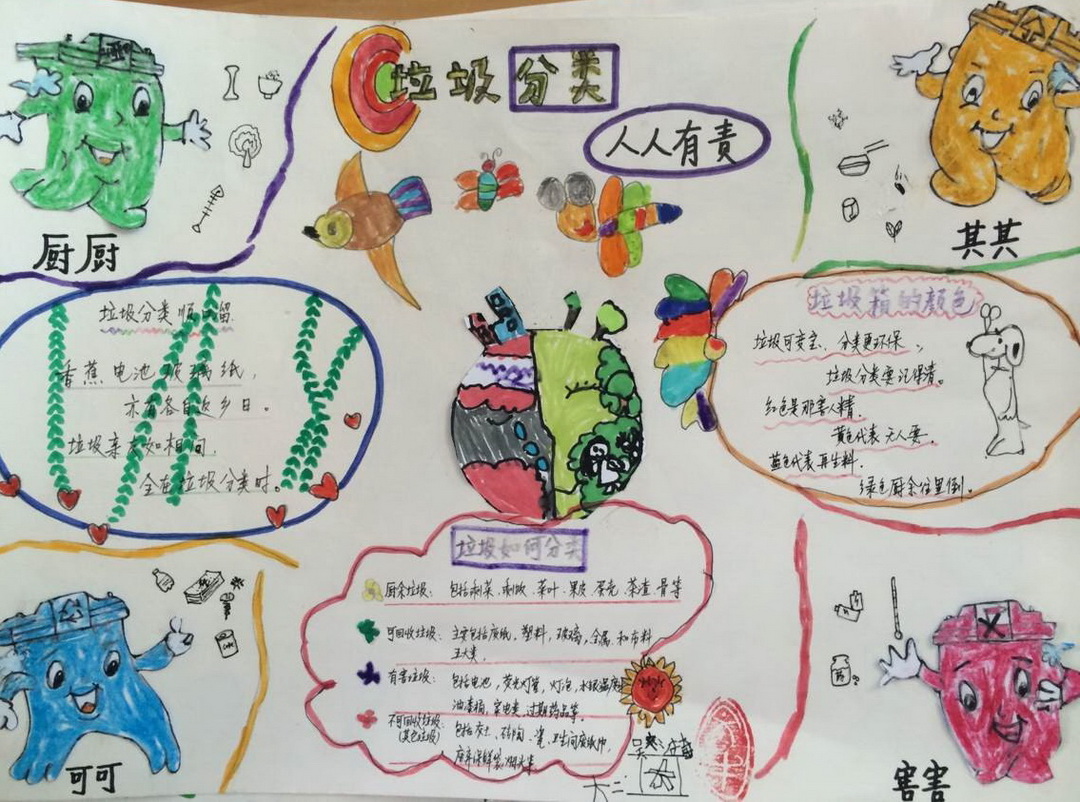 垃圾分类
人人有责
厨厨
其其
垃圾分类顺口留
香蕉电池玻璃纸，
亦有各自返乡日。
垃圾亲友如相问，
全在垃圾分类时。
垃圾箱的颜色
垃圾可变宝、分类更环保，
垃圾分类要记得清。
红色是那害人精.
黄色代表无人要.
蓝色代表再生料.
绿色厨余往里倒.
垃圾如何分类
厨余垃圾： 包括剩菜、剩饭、菜叶、果皮、蛋壳、茶渣、骨等
可回收垃圾： 主要包括废纸，塑料，玻璃，金属和布料
五大类.
有害垃圾： 包括电池，荧光灯管，灯泡，水银温度
油漆桶，家电类，过期药品等.
不可回收垃圾：
(其他垃圾) 包括灰土、砖陶、瓷、卫生间废纸巾，
可可
害害